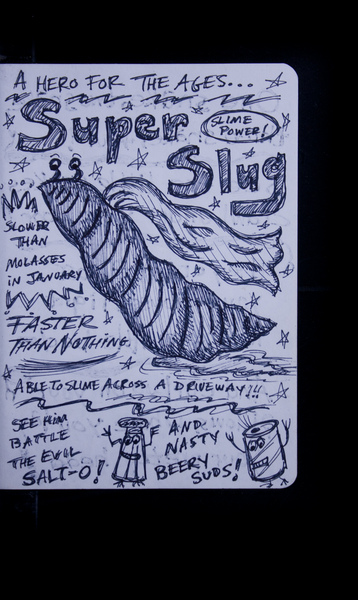 A HERO FOR THE AGES...
Super
SLIME
POWER!
Slug
SLOWER
THAN
MOLASSES
IN JANUARY
FASTER
THAN NOTHING
ABLE TO SLIME ACROSS A DRIVEWAY!!!
SEE HIM
BATTLE
THE EVIL
SALT-O!
AND
NASTY
BEERY
SUDS!